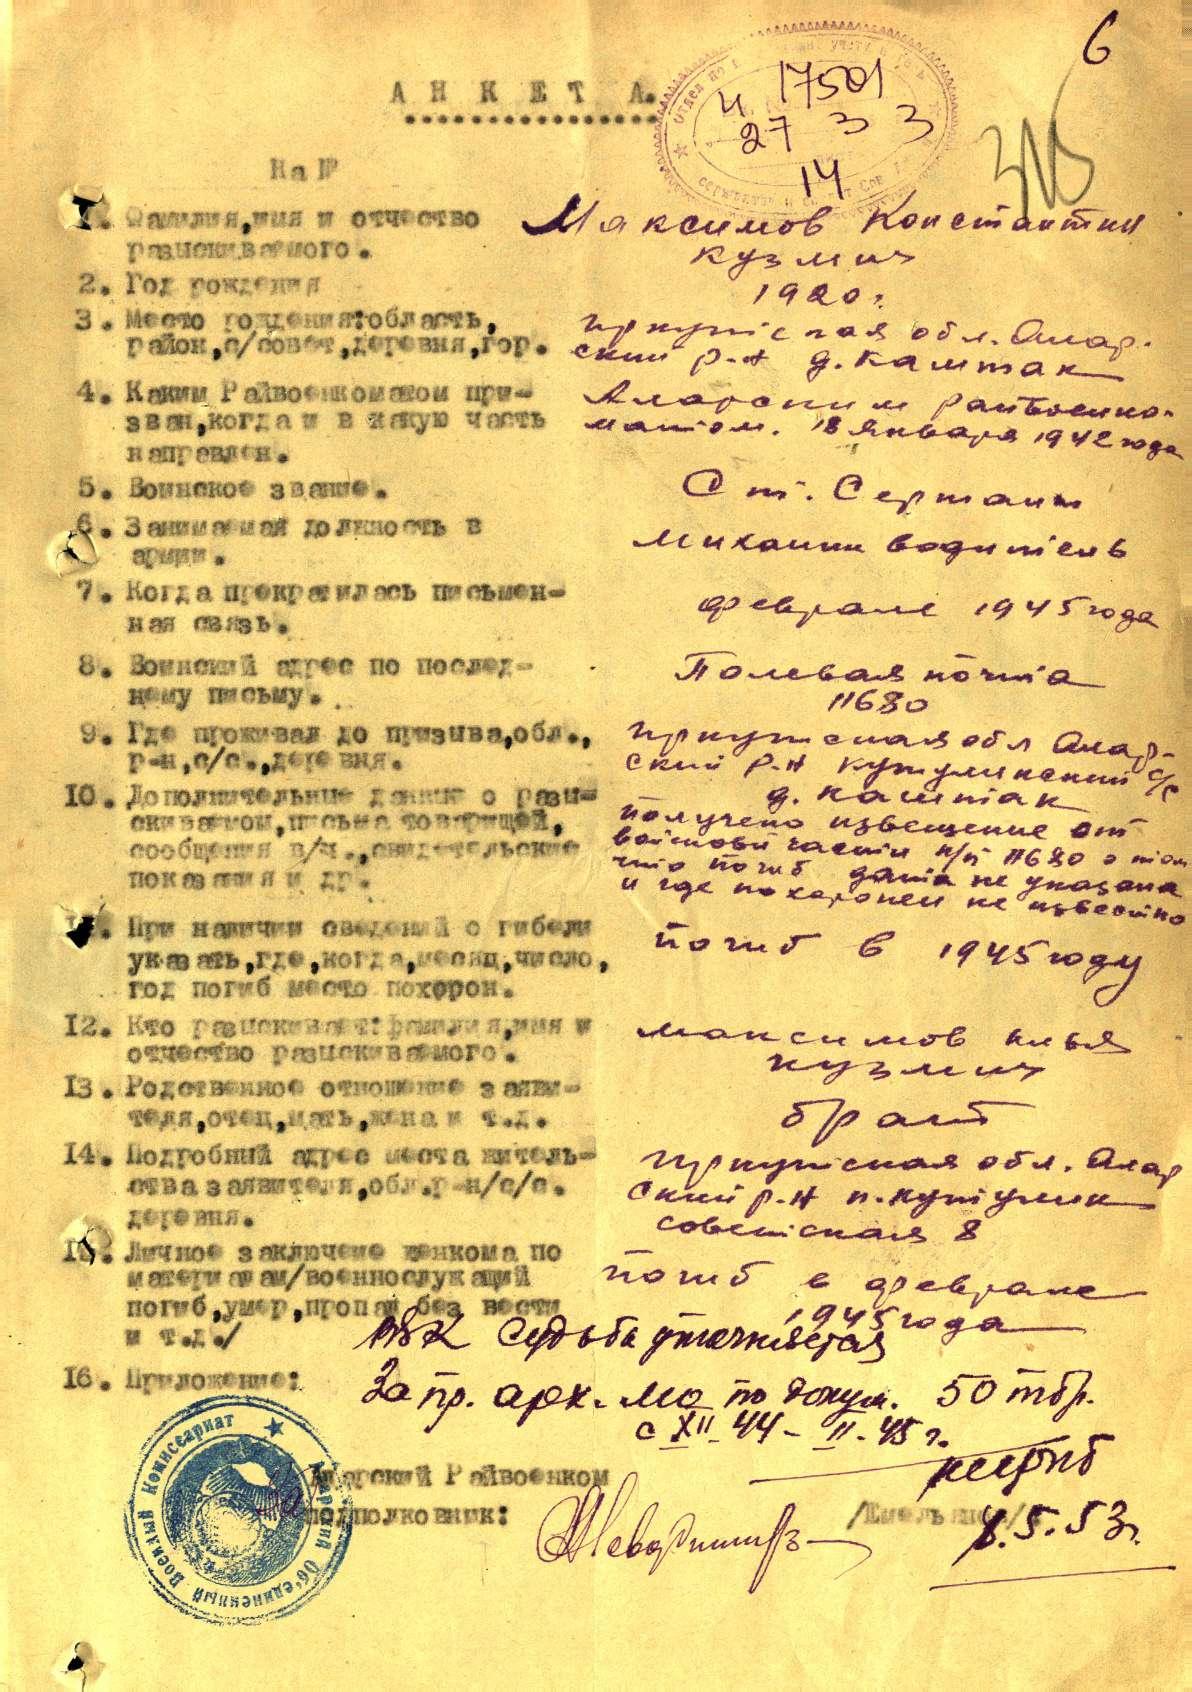 6
АНКЕТА.
Ч 17501
27 3 3
14
На №
1. Фамилия,имя и отчество Максимов Константин
разыскиваемого. Кузмич
2. Год рождения 1920 г.
3. Место рождения:область, иркутская обл. Алар-
район,с/совет,деревня,гор. ский р-н д. Каштак
4. Каким Райвоенкоматом при- Аларским райвоенко-
зван,когда и в какую часть матом. 18 января 1942 года
направлен.
5. Воинское звание. Ст. Сержант
6. Занимаемая должность в
армии. миханик водитель
7. Когда прекратилась письмен-
ная связь. феврале 1945 года
8. Воинский адрес по послед- Полевая почта
нему письму. 11680
9. Где проживал до призыва,обл., иркутская обл Алар-
р-н,с/с.,деревня. ский р-н кутуликский с/с
д. каштак
10. Дополнительные данные о разы- получено извещение от
скиваемом,письма товарищей, войсковой части п/п 11680 о том
сообщения в/ч.,свидетельские что погиб дата не указана
показания и др. и где похоронен не известно
11. При наличии сведений о гибели погиб в 1945 году
указать,где,когда,месяц,число,
год погиб место похорон.
12. Кто разыскивает:фамилия,имя и максимов илья
отчество разыскиваемого. кузмич
13. Родственное отношение заяви-
теля,отец,мать,жена и т.д. брат
14. Подробный адрес места житель- иркутская обл. Алар
ства заявителя,обл.р-н/с/с. ский р-н п. кутулик
деревня. советская 8
15. Личное заключение
военкома по
материалам/военнослужащий погиб в феврале
погиб,умер,пропал без вести 1945 года
и т.д./ Судьба уточняется
16. Приложение: Запр. арх. МО по докум. 50 тбр.
с XII-44 - II-45 г.
Аларский Райвоенком
подполковник:
5.53г.
Аларский Объединенный Военный Комиссариат